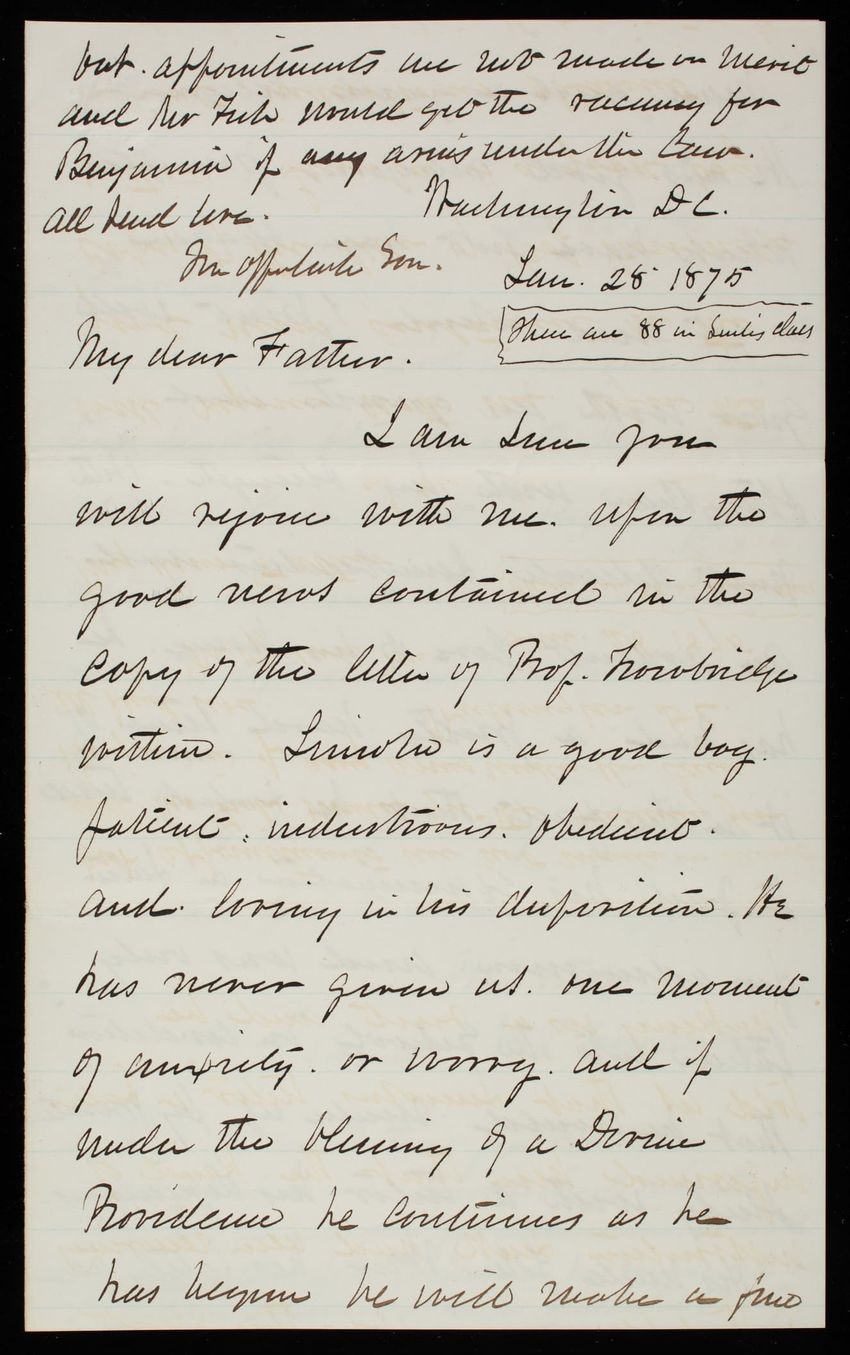 but. appointments are not made on merit
and Mr Fish would get the vacancy for
Benjamin if any arises under the Law.
All send love.
Washington DC.
Yr affectionate Son.
Jan. 28 1875
There are 88 in Linc's class
My dear Father.
I am sure you
will rejoice with me. upon the
good news contained in the
copy of the letter of Prof. Trowbridge
within. Lincoln is a good boy.
patient, industrious. obedient.
and. loving in his disposition. He
has never given us. one moment
of anxiety. or worry. and if
under the blessing of a Divine
Providence he continues as he
has begun he will make a fine